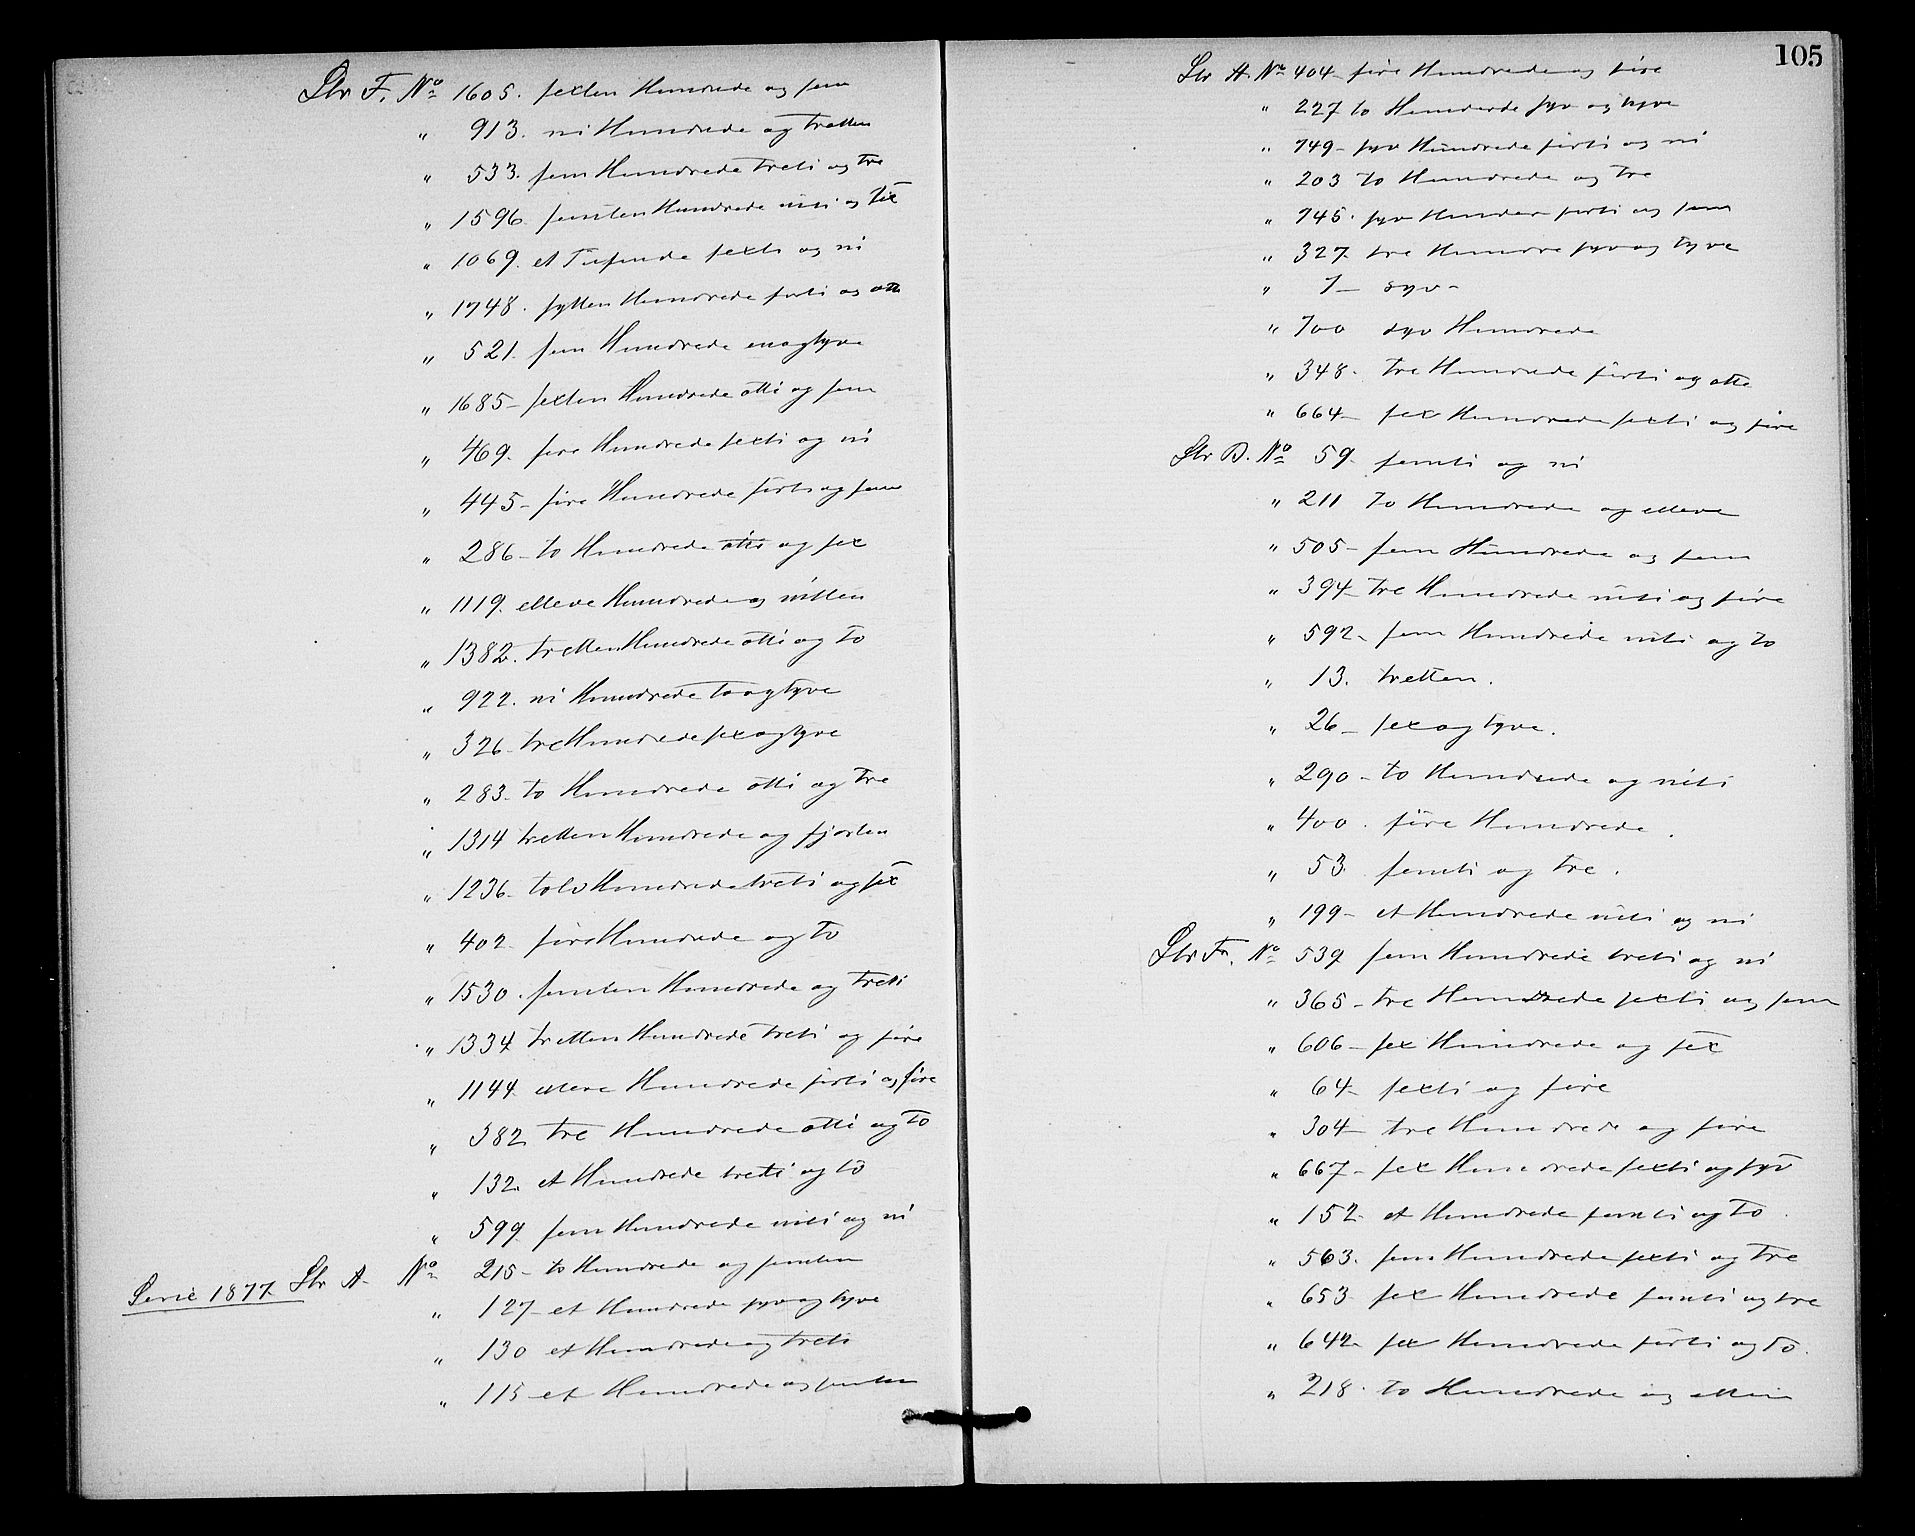 Ltr F. No 1605. sexten Hundrede og fem
" 913. ni Hundrede og tretten
" 533. fem Hundrede treti og tre
" 1596. femten Hundrede niti og sex
" 1069. et Tusende sexti og ni
" 1748. sytten Hundrede firti og otte
" 521. fem Hundrede enogtyve
" 1685 – sexten Hundrede otti og fem
" 469. fire Hundrede sexti og ni
" 445 – fire Hundrede firti og fem
" 286 – to Hundrede otti og sex
" 1119. elleve Hundrede og nitten
" 1382. tretten Hundrede otti og to
" 922. ni Hundrede toogtyve
" 326 – tre Hundrede sexogtyve
" 283. to Hundrede otti og tre
" 1314 tretten Hundrede og fjorten
" 1236 – tolv Hundrede treti og sex
" 402 – fire Hundrede og to
" 1530. femten Hundrede og treti
" 1334 tretten Hundrede treti og fire
" 1144. elleve Hundrede firti og fire
" 382 tre Hundrede otti og to
" 132. et Hundrede treti og to
" 599 fem Hundrede niti og ni
Serie 1877. Ltr A – No 215 – to Hundrede og femten
" 127 – et Hundrede syv og tyve
" 130 et Hundrede og treti
" 115 – et Hundrede og femten
105
Ltr A. No 404 – fire Hundrede og fire
" 227 to Hunderde syv og tyve
" 749 – syv Hundrede firti og ni
" 203 to Hundrede og tre
" 745. syv Hundre firti og fem
" 327. tre Hundre syv og tyve
" 7 – syv –
" 700 syv Hundrede
" 348. tre Hundrede firti og otte
" 664 – sex Hundrede sexti og fire
Ltr D. No 59 femti og ni
" 211 to Hundrede og elleve
" 505 – fem Hundrede og fem
" 394 – tre Hundrede niti og fire
" 592 – fem Hundrede niti og to
" 13. tretten.
" 26 – sexogtyve.
" 290 – to Hundrede og niti
" 400. fire Hundrede.
" 53. femti og tre.
" 199 – et Hundrede niti og ni
Ltr F. No 539 fem Hundrede treti og ni
" 365 – tre Hundrede sexti og fem
" 606 – sex Hundrede og sex
" 64 – sexti og fire
" 304 – tre Hundrede og fire
" 667 – sex Hundrede sexti og syv
" 152 – et Hundrede femti og to.
" 563. fem Hundrede sexti og tre
" 653 sex Hundrede femti og tre
" 642 – sex Hundrede firti og to.
" 218. to Hundrede og atten